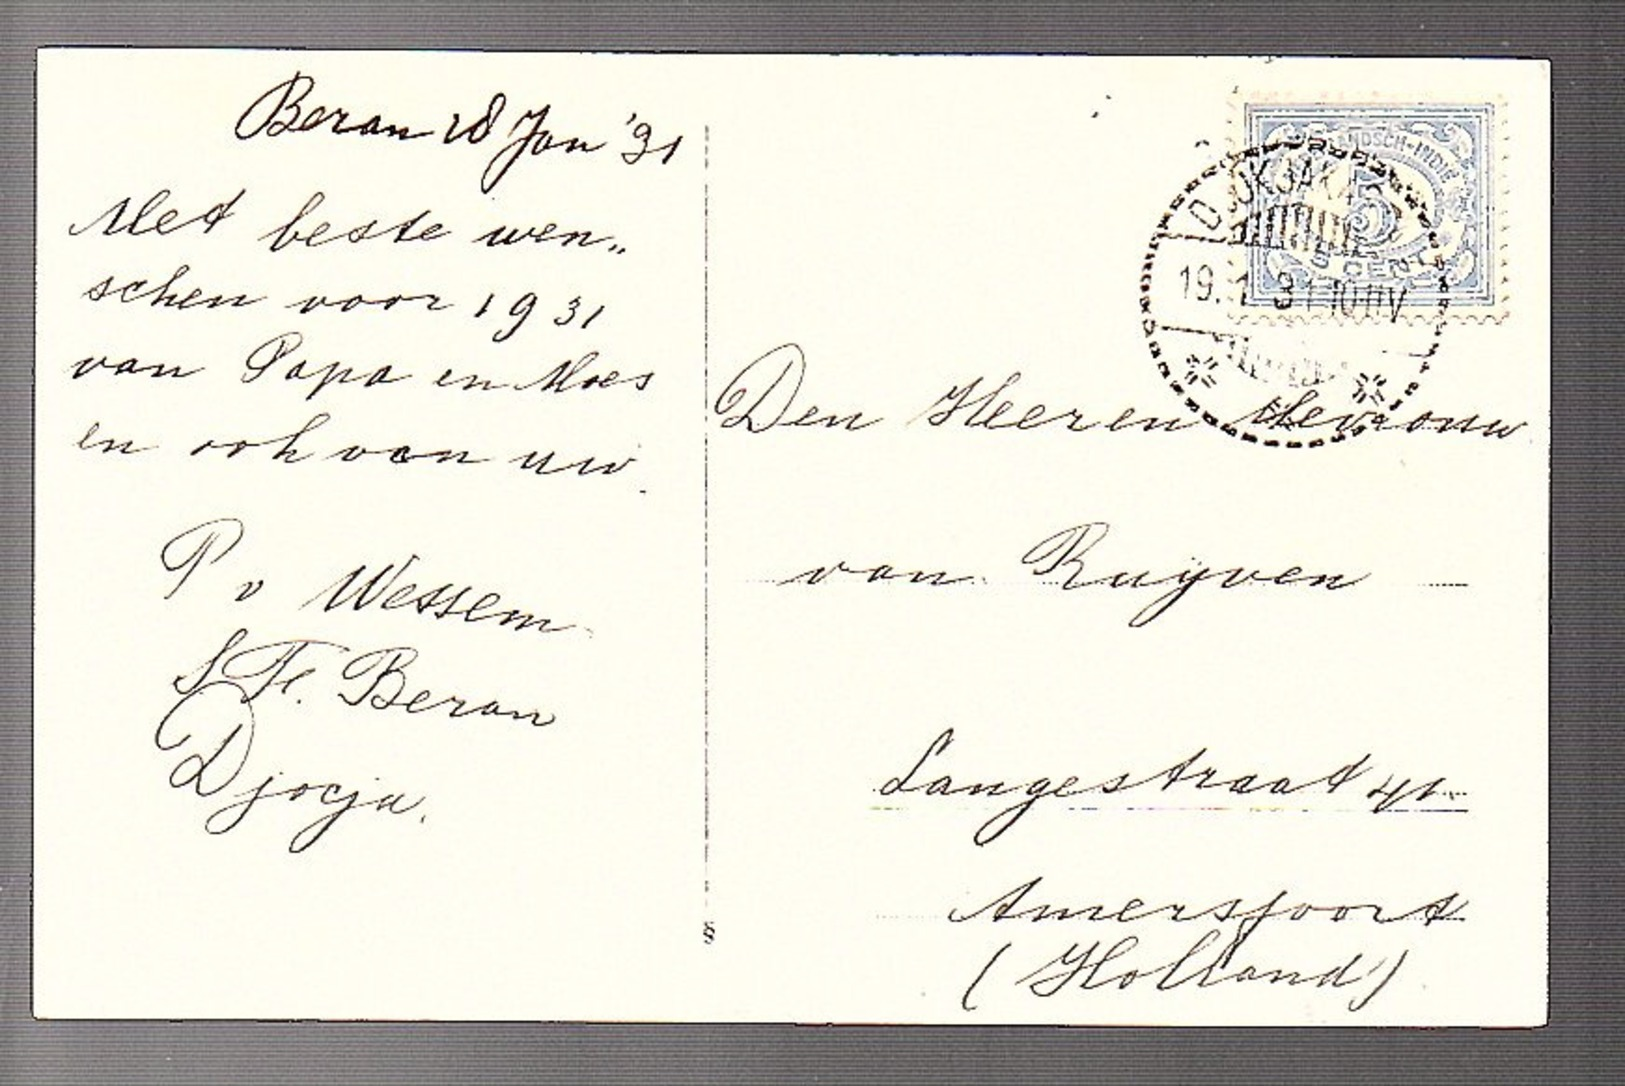 Beran 18 Jan '31
Met beste wen„
schen voor 1931
van Papa en Moes
en ook van uw
P v Wessem
S. Fe. Beran
Djocja.
DJOKJAKARTA
19.1.31.10-11V
NEDERLANDSCH-INDIË
5
5 CENT
Den Heer en Mevrouw
van Ruyven
Langestraat 41.
Amersfoort
(Holland)
S